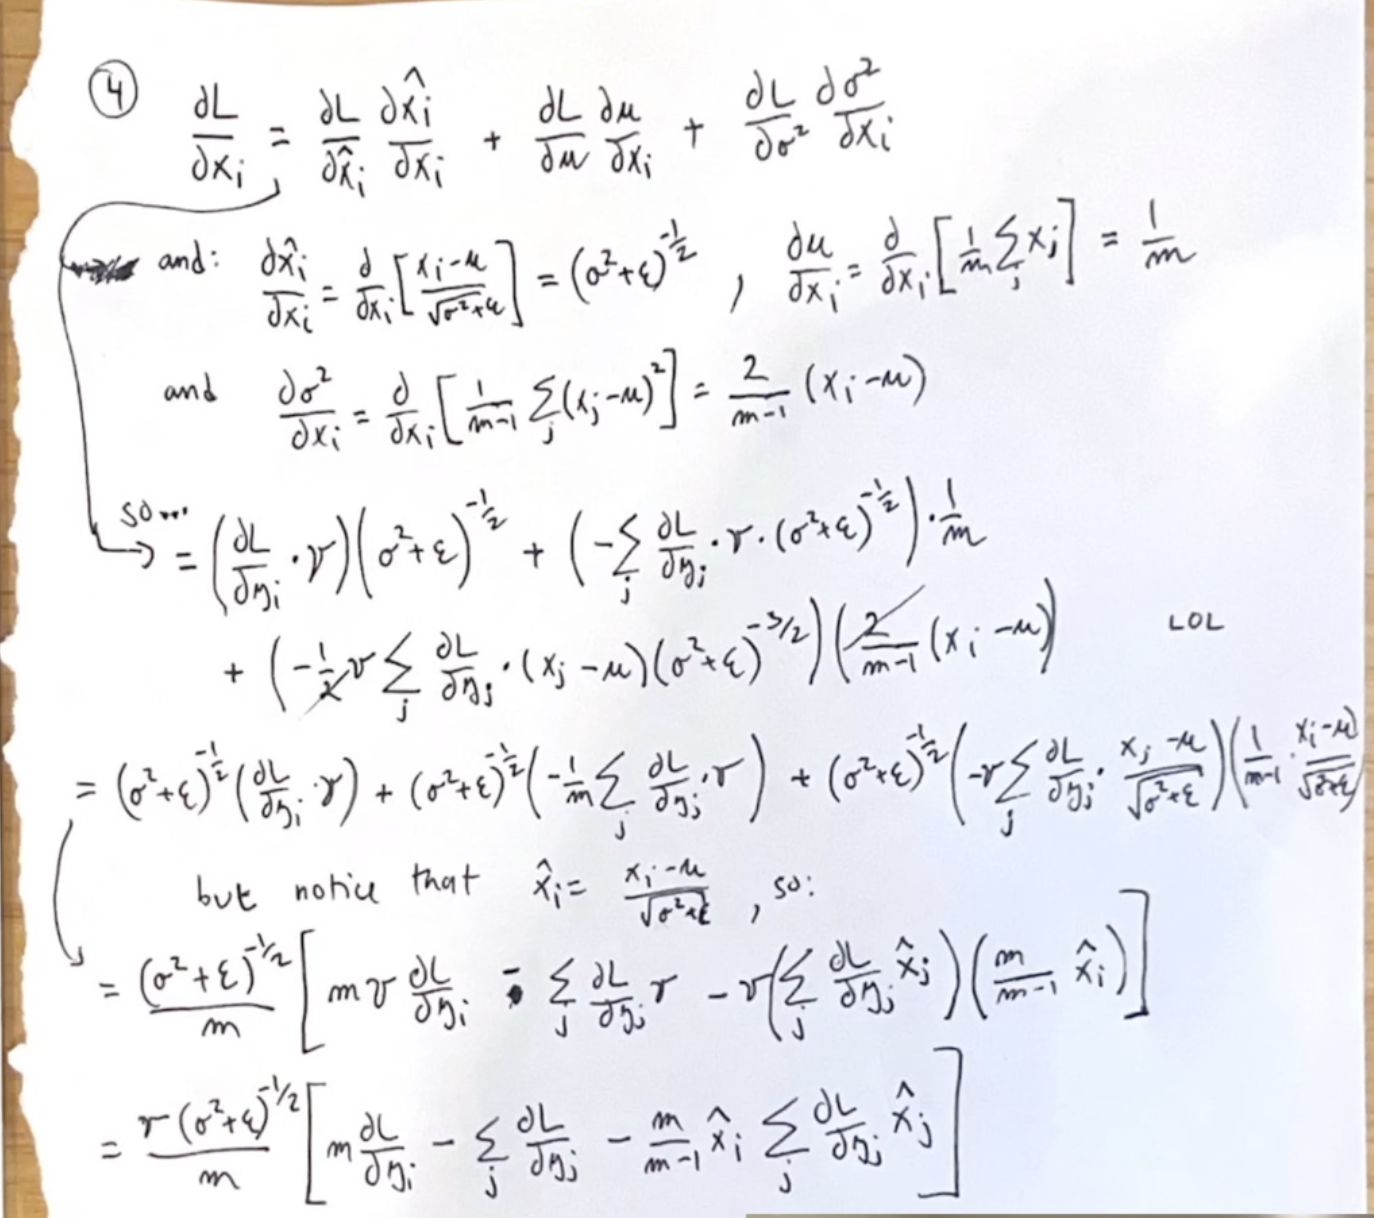 ④ ∂L/∂xᵢ = ∂L/∂x̂ᵢ ∂x̂ᵢ/∂xᵢ + ∂L/∂μ ∂μ/∂xᵢ + ∂L/∂σ² ∂σ²/∂xᵢ
and: ∂x̂ᵢ/∂xᵢ = ∂/∂xᵢ [(xᵢ-μ)/√(σ²+ε)] = (σ²+ε)^(-1/2) , ∂μ/∂xᵢ = ∂/∂xᵢ [1/m Σⱼ xⱼ] = 1/m
and ∂σ²/∂xᵢ = ∂/∂xᵢ [1/(m-1) Σⱼ (xⱼ-μ)²] = 2/(m-1) (xᵢ-μ)
so...
= (∂L/∂yᵢ · γ)(σ²+ε)^(-1/2) + (-Σⱼ ∂L/∂yⱼ · γ · (σ²+ε)^(-1/2)) · 1/m
+ (-1/2 γ Σⱼ ∂L/∂yⱼ · (xⱼ-μ)(σ²+ε)^(-3/2)) (2/(m-1) (xᵢ-μ)) LOL
= (σ²+ε)^(-1/2) (∂L/∂yᵢ · γ) + (σ²+ε)^(-1/2) (-1/m Σⱼ ∂L/∂yⱼ · γ) + (σ²+ε)^(-1/2) (-γ Σⱼ ∂L/∂yⱼ · (xⱼ-μ)/√(σ²+ε)) (1/(m-1) · (xᵢ-μ)/√(σ²+ε))
but notice that x̂ᵢ = (xᵢ-μ)/√(σ²+ε) , so:
= (σ²+ε)^(-1/2)/m [mγ ∂L/∂yᵢ - Σⱼ ∂L/∂yⱼ γ - γ(Σⱼ ∂L/∂yⱼ x̂ⱼ)(m/(m-1) x̂ᵢ)]
= γ(σ²+ε)^(-1/2)/m [m ∂L/∂yᵢ - Σⱼ ∂L/∂yⱼ - m/(m-1) x̂ᵢ Σⱼ ∂L/∂yⱼ x̂ⱼ]